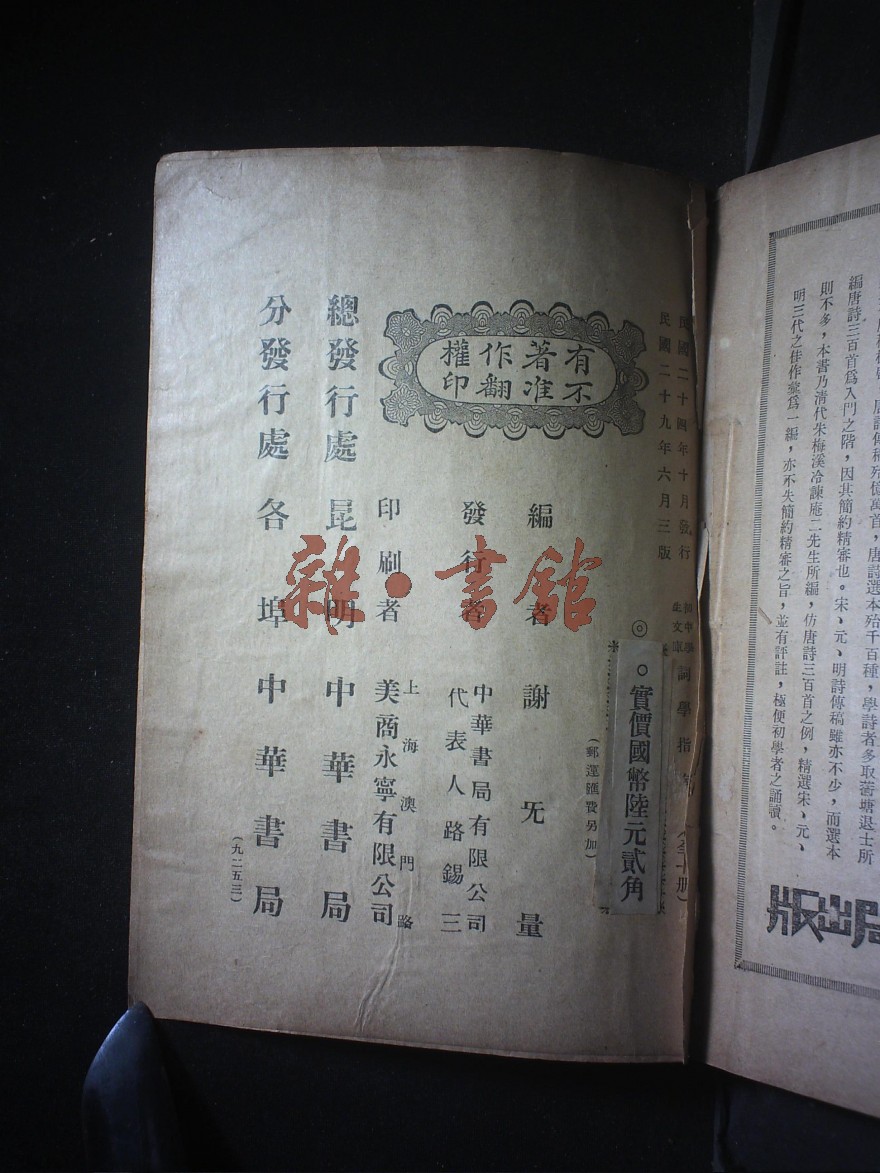 編唐詩三百首爲入門之階，因其簡約精審也。宋、元、明詩傳稿雖亦不少，而選本
則不多，本書乃清代朱梅溪冷諫庵二先生所編，仿唐詩三百首之例，精選宋、元、
明三代之佳作彙爲一編，亦不失簡約精審之旨，並有評註，極便初學者之誦讀。
版出局
民國二十四年十月發行
民國二十九年六月三版
詞學指
◎
。實價國幣陸元貳角
（郵運匯費另加）
有著作權
不准翻印
編者 謝无量
發行者 中華書局有限公司
代表人路錫三
印刷者 上海澳門路
美商永寧有限公司
總發行處 昆明 中華書局
分發行處 各埠 中華書局
（九二五三）
雜·書館